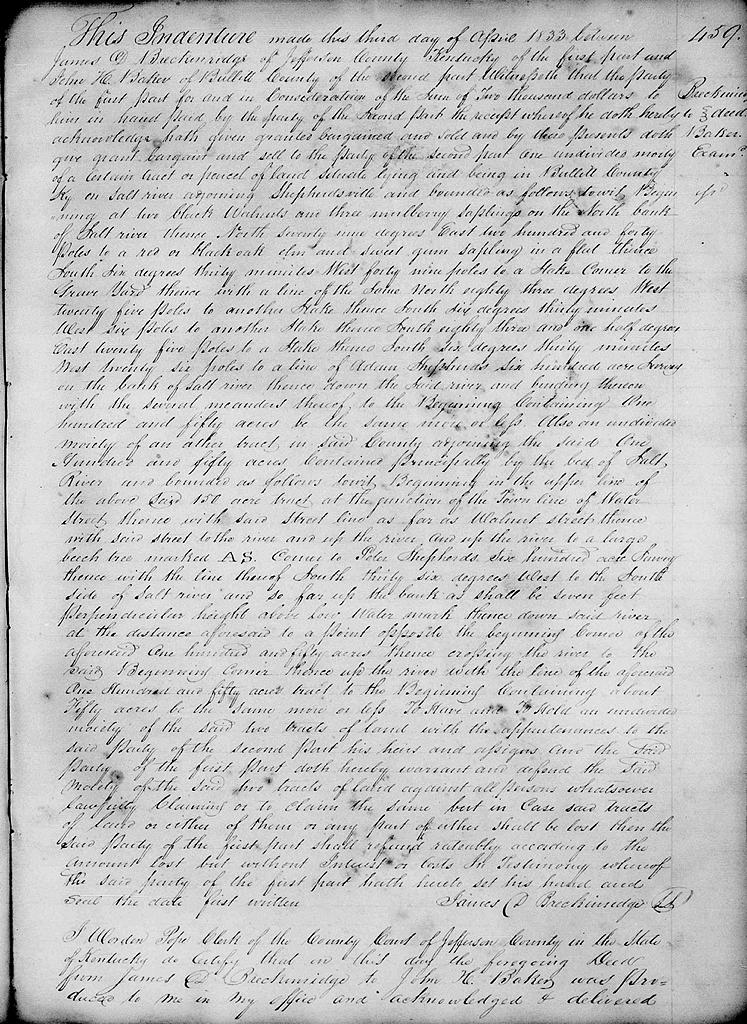 This Indenture made this third day of April 1833 between
James D Breckinridge of Jefferson County Kentucky of the first part and
John H. Baker of Bullitt County of the second part Witnesseth that the party
of the first part for and in Consideration of the Sum of Two thousand dollars to
him in hand paid by the party of the second part the receipt whereof he doth hereby
acknowledge hath given granted bargained and sold and by these presents doth
give grant bargain and sell to the party of the second part One undivided moiety
of a Certain tract or parcel of land situate lying and being in Bullitt County
Ky on Salt river adjoining Shepherdsville and bounded as follows towit Begin
ning at two black Walnuts and three mulberry saplings on the North bank
of Salt river thence North seventy nine degrees East two hundred and forty
poles to a red or black oak elm and sweet gum sapling in a flat thence
South Six degrees thirty minutes West forty nine poles to a Stake Corner to the
Grave Yard thence with a line of the same North eighty three degrees West
twenty five poles to another Stake thence South Six degrees thirty minutes
West Six poles to another Stake thence South eighty three and one half degrees
East twenty five poles to a Stake thence South six degrees thirty minutes
West twenty six poles to a line of Adam Shepherds Six hundred acre Survey
on the bank of Salt river thence down the said river and binding thereon
with the several meanders thereof to the Beginning Containing One
hundred and fifty acres be the same more or less Also an undivided
moiety of an other tract in said County adjoining the said One
Hundred and fifty acres Contained principally by the bed of Salt
River and bounded as follows towit Beginning in the upper line of
the above said 150 acre tract at the junction of the Town line of Water
Street thence with said Street line as far as Walnut street thence
with said street to the river and up the river and up the river to a large
beech tree marked AS. Corner to Peter Shepherds six hundred acre Survey
thence with the line thereof South thirty six degrees West to the South
side of Salt river and so far up the bank as shall be seven feet
perpendicular height above low Water mark thence down said river
at the distance aforesaid to a point opposite the beginning Corner of the
aforesaid One hundred and fifty acres thence crossing the river to the
said Beginning Corner thence up the river with the line of the aforesaid
One Hundred and fifty acres tract to the Beginning Containing about
Fifty acres be the same more or less To Have and To Hold an undivided
moiety of the said two tracts of land with the appurtenances to the
said party of the second part his heirs and assigns And the said
party of the first part doth hereby warrant and defend the said
moiety of the said two tracts of land against all persons whatsoever
lawfully Claiming or to claim the same but in Case said tracts
of land or either of them or any part of either shall be lost then the
said party of the first part shall refund rateably according to the
amount lost but without Interest or costs In Testimony whereof
the said party of the first part hath hereto set his hand and
seal the date first written James D Breckinridge LS
I Worden Pope Clerk of the County Court of Jefferson County in the State
of Kentucky do Certify that on this day the foregoing Deed
from James D Breckinridge to John H. Baker was pro-
duced to me in my office and acknowledged & delivered
459.
Breckinridge
to deed
Baker
Exam.d